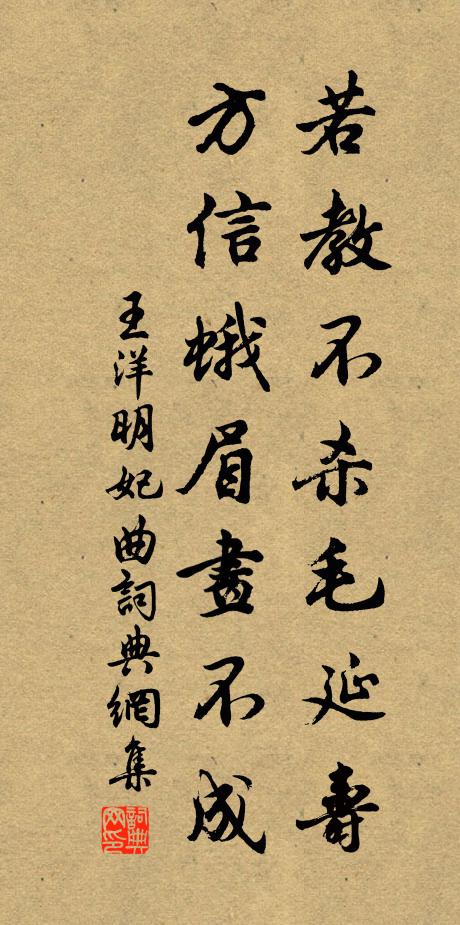 若教不杀毛延壽
方信蛾眉畫不成
王洋明妃曲詞典網集
詞典網印